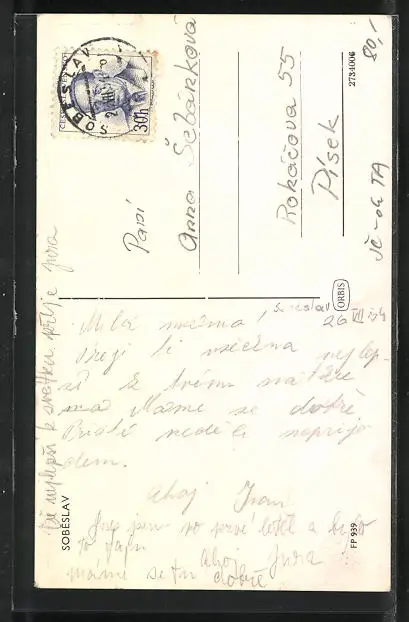 SOBĚSLAV
30h
Paní
Anna Šebánková
Rokáčova 55
Písek
2734006
80,/
JČ-06 TA
ORBIS
Soběslav
26 VII 54
Milá mamma,
Přeji ti všechno nejlep-
ší k tvému svátku
Máme se dobře
Příští neděli nepřije
dem.
Ahoj Ivan
jsem po prvé letěl a bylo
to fajn
Ahoj Jura
máme se tu dobře
nejlepší k svátku přeje Jura
SOBĚSLAV
FP 939